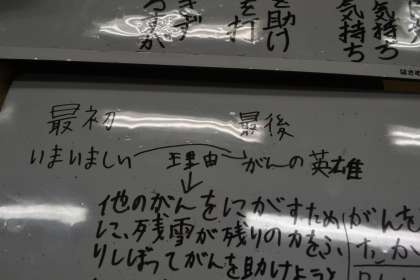 を助け
気持ち
気持ち
を打
きず
最初　最後
いまいましい　理由　がんの英雄
他のがんをにがすため
に、残雪が残りの力をふ
りしぼってがんを助けようと
がんを